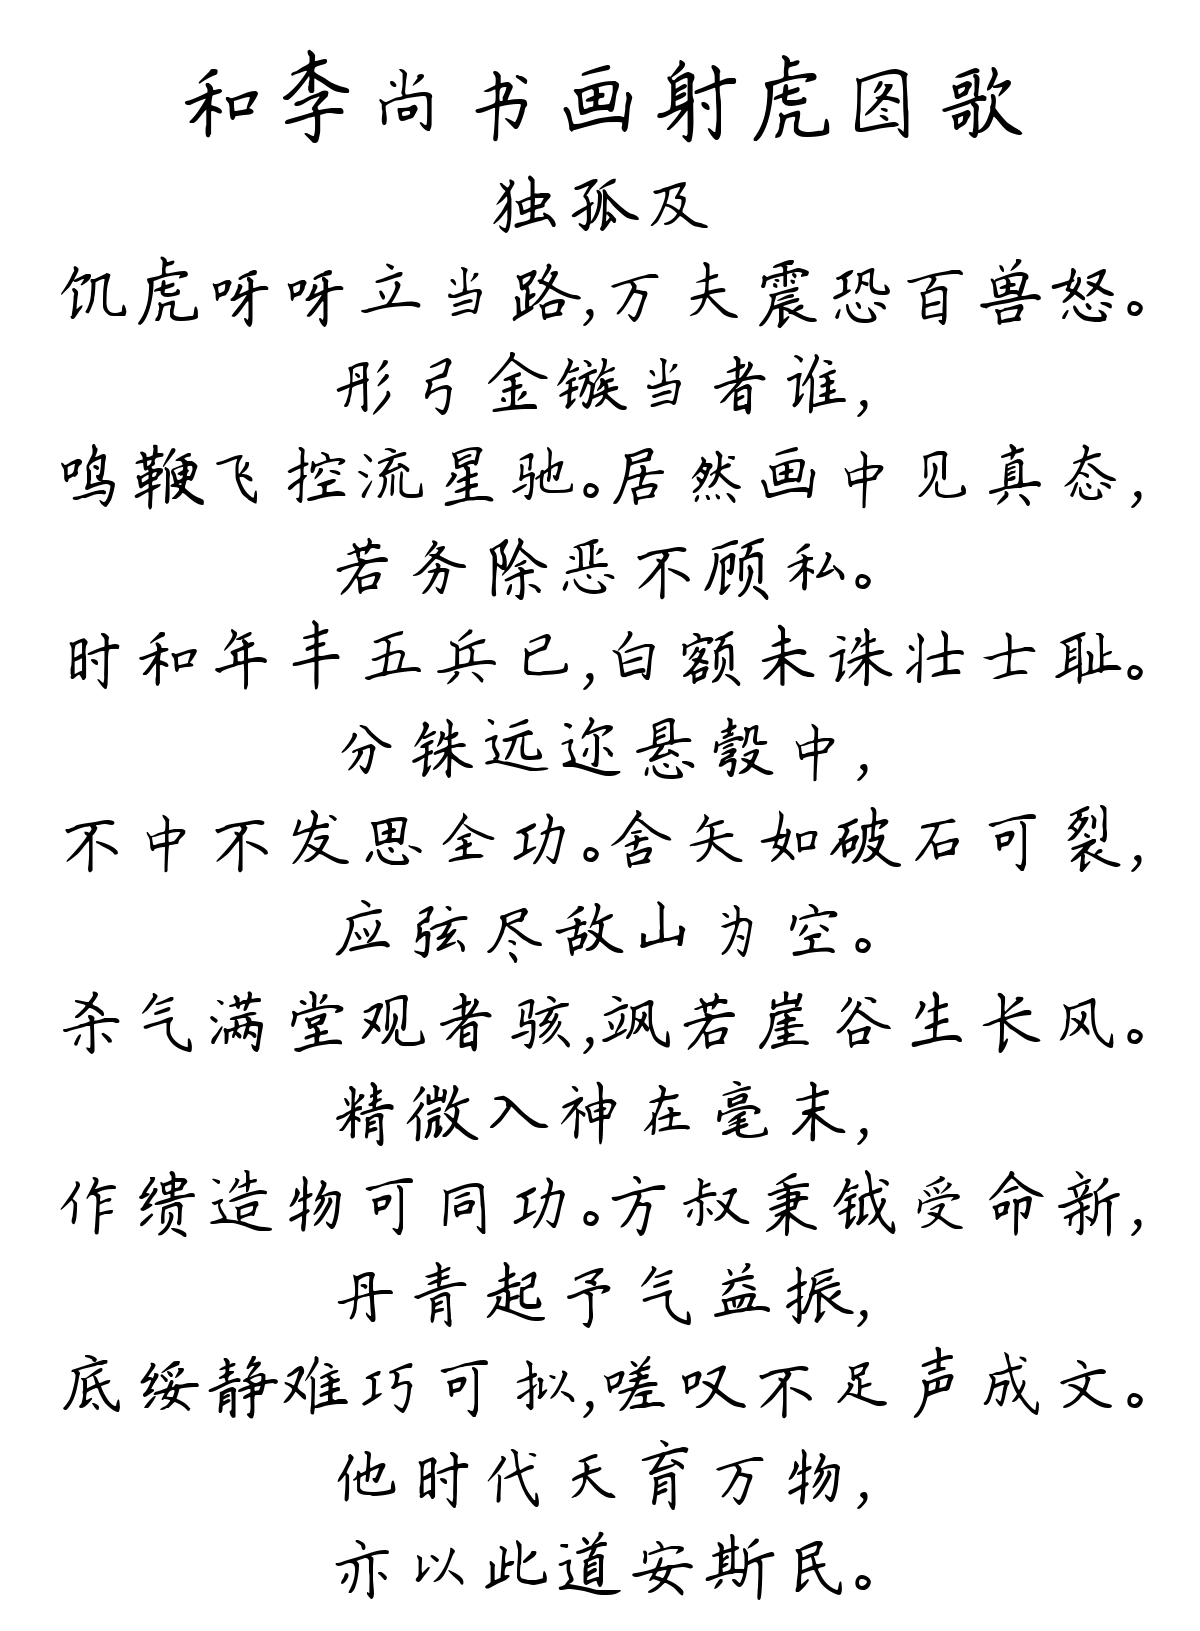 和李尚书画射虎图歌
独孤及
饥虎呀呀立当路,万夫震恐百兽怒。
彤弓金镞当者谁,
鸣鞭飞控流星驰。居然画中见真态,
若务除恶不顾私。
时和年丰五兵已,白额未诛壮士耻。
分铢远迩悬彀中,
不中不发思全功。舍矢如破石可裂,
应弦尽敌山为空。
杀气满堂观者骇,飒若崖谷生长风。
精微入神在毫末,
作缋造物可同功。方叔秉钺受命新,
丹青起予气益振,
底绥静难巧可拟,嗟叹不足声成文。
他时代天育万物,
亦以此道安斯民。